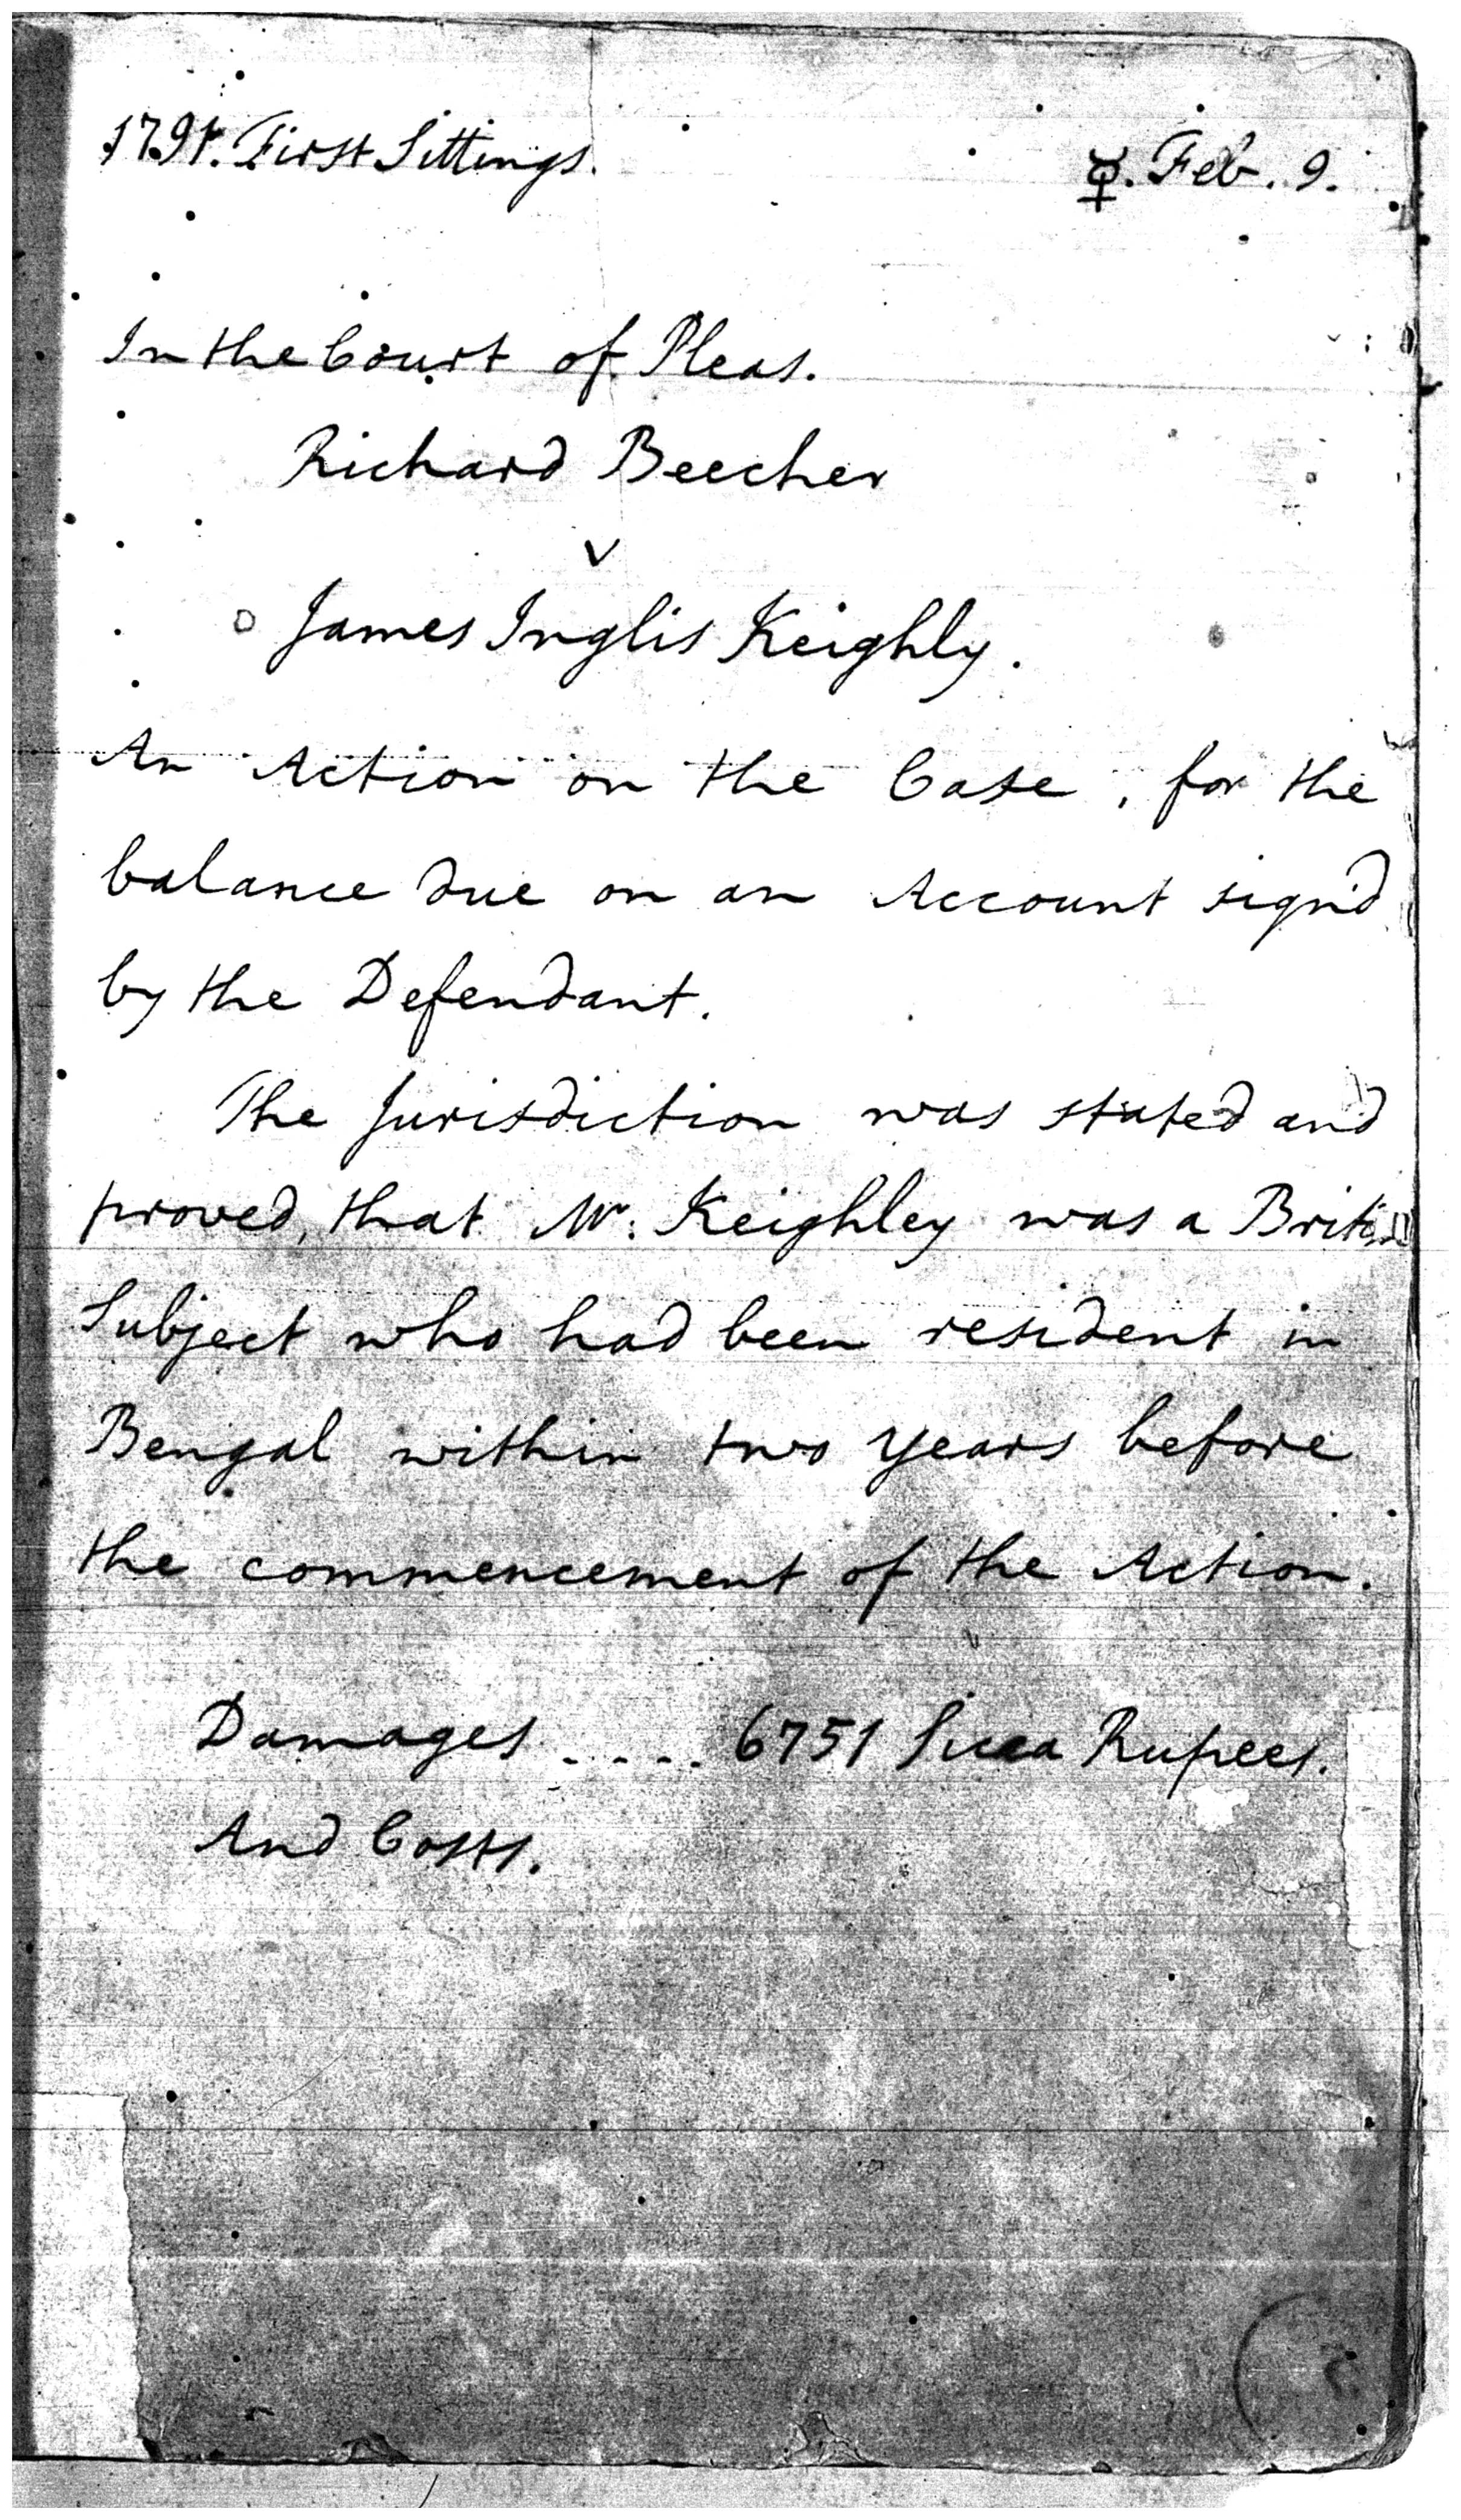 1791. First Sittings.
☿. Feb. 9.
In the Court of Pleas.
Richard Beecher
v
James Inglis Keighly.
An Action on the Case, for the
balance due on an Account sign'd
by the Defendant.
The Jurisdiction was stated and
proved, that Mr. Keighley was a British
Subject who had been resident in
Bengal within two years before
the commencement of the Action.
Damages ..... 6751 Sicca Rupees.
And Costs.